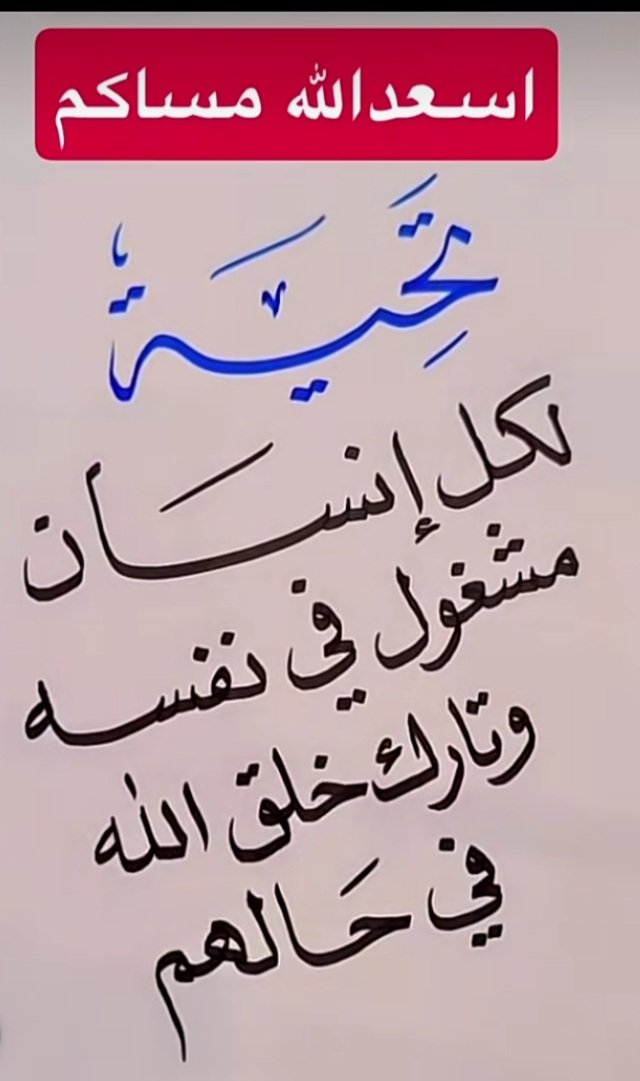 اسعدالله مساكم
تَحِيَّة
لكل إنسان
مشغول في نفسه
وتارك خلق الله
في حَالهم